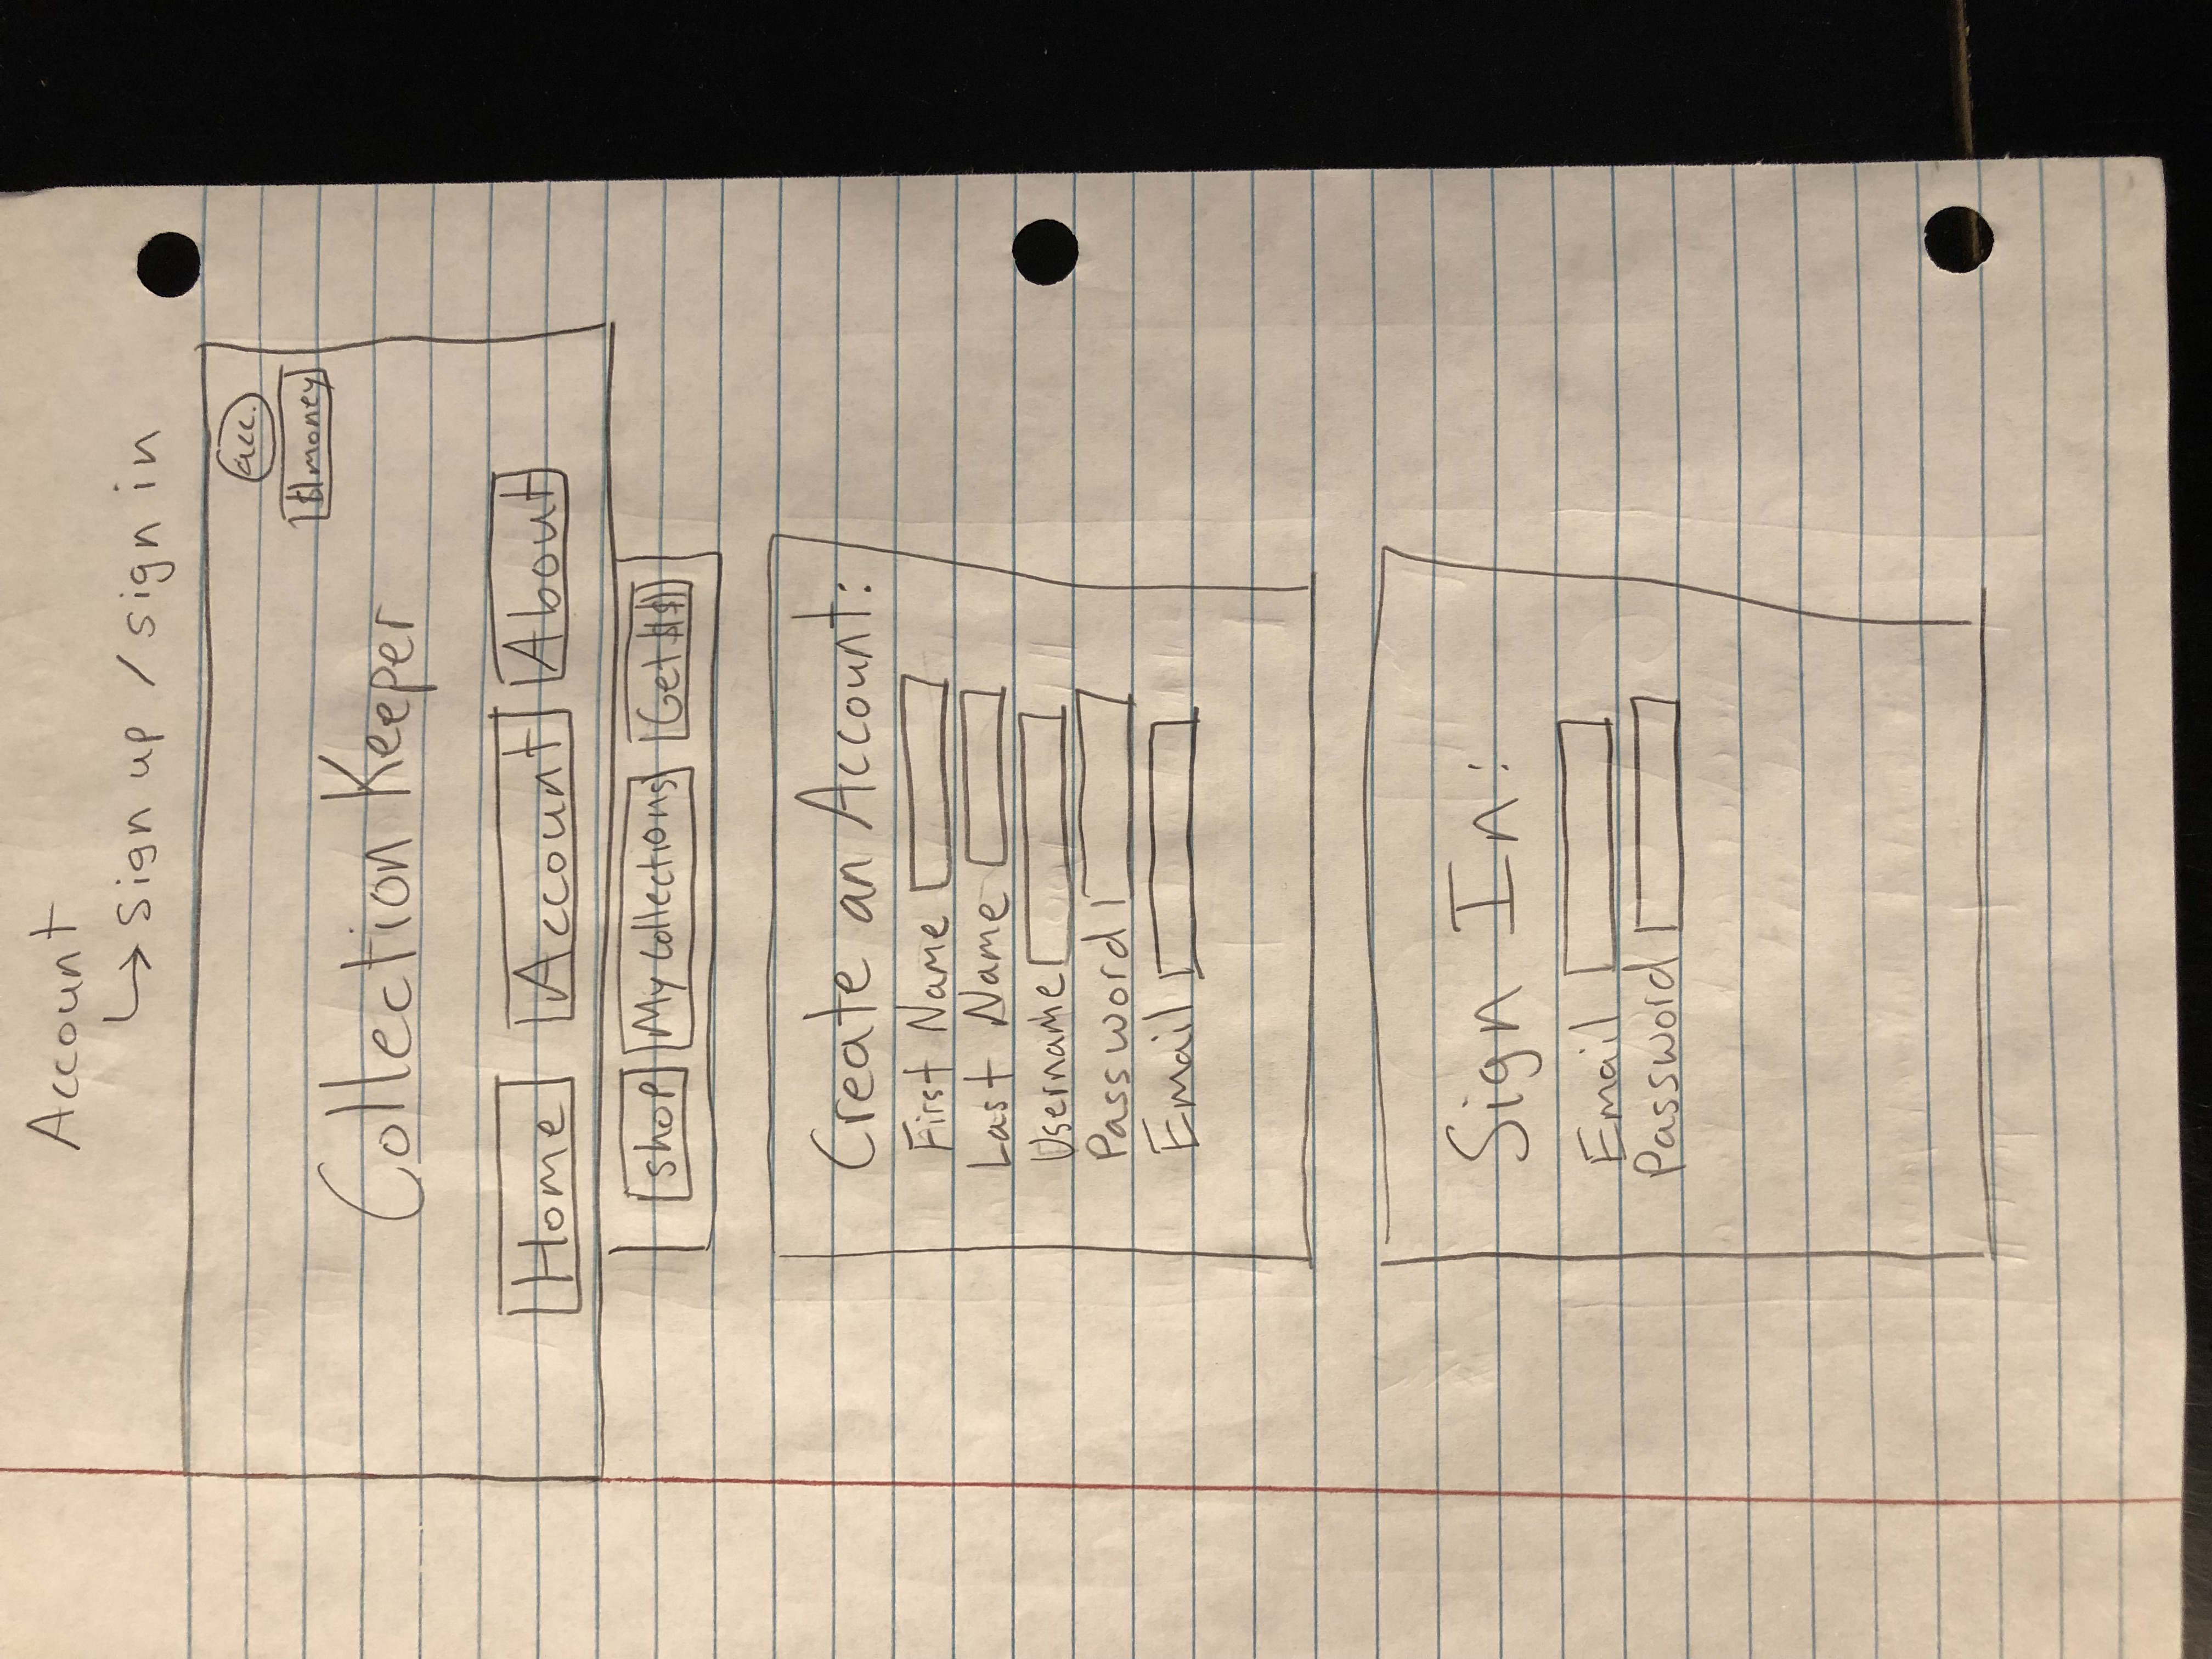 Account
↳ sign up / sign in
acc.
$ money
Collection Keeper
Home Account About
shop My Collections Get $$
Create an Account:
First Name
Last Name
Username
Password
Email
Sign In:
Email
Password